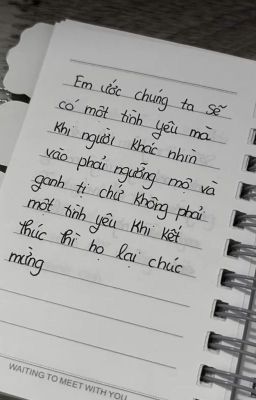 Em ước chúng ta sẽ
có một tình yêu mà
khi người khác nhìn
vào phải ngưỡng mộ và
ganh tị chứ không phải
một tình yêu khi kết
thúc thì họ lại chúc
mừng
WAITING TO MEET WITH YOU